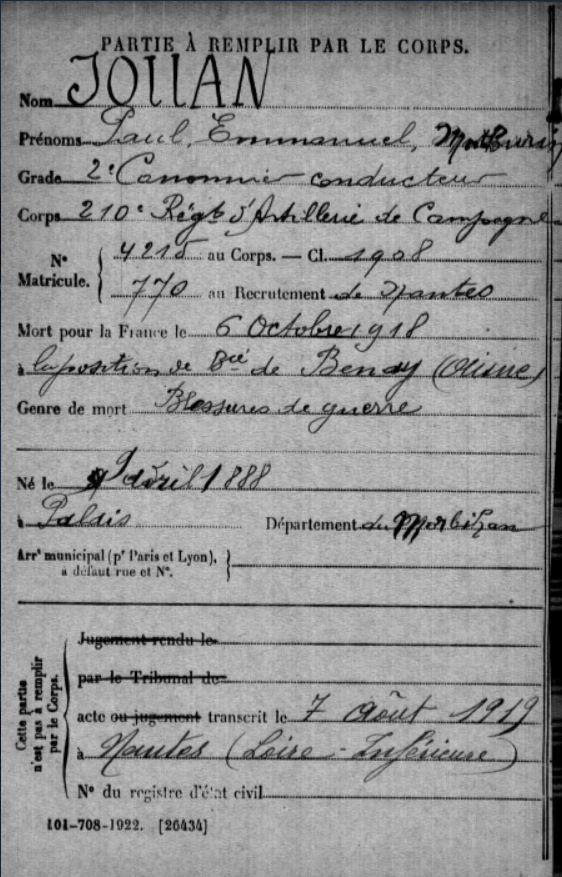 PARTIE À REMPLIR PAR LE CORPS.
Nom JOUAN
Prénoms Paul, Emmanuel, Mathurin
Grade 2e Canonnier conducteur
Corps 210e Régt d'Artillerie de Campagne
N° Matricule. 4215 au Corps. — Cl. 1908
770 au Recrutement de Nantes
Mort pour la France le 6 Octobre 1918
à la position de Bie de Benay (Aisne)
Genre de mort Blessures de guerre
Né le 9 Avril 1888
à Palais Département du Morbihan
Arrt municipal (pr Paris et Lyon),
à défaut rue et N°.
Cette partie n'est pas à remplir par le Corps.
Jugement rendu le
par le Tribunal de
acte ou jugement transcrit le 7 Août 1919
à Nantes (Loire-Inférieure)
N° du registre d'état civil
101-708-1922. [26434]